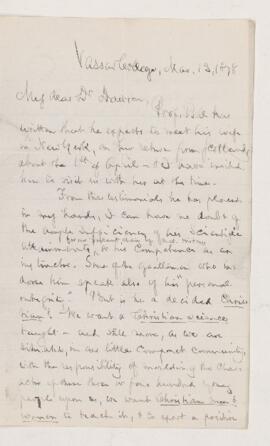 Vassar College, Mar. 13, 1878
My dear Dr Dawson,
Prof. B has
written that he expects to meet his wife
in New York, on his return from
about the 1st of April - & I have invited
him to visit us with her at the time.
From the testimonials he has placed
in my hands, I can have no doubt of
the ample sufficiency of his Scientific
attainments, or his Competence as an
instructor. Some of the gentlemen who
speak also of his "personal
integrity." But is he a decided Chris-
tian? We want a Christian science
taught - and still more, as we are
situated, in our little compact community,
with the responsibility of moulding the Char-
acter of these three or four hundred young
people upon us, we want Christian men &
women to teach it, & to exert a positive